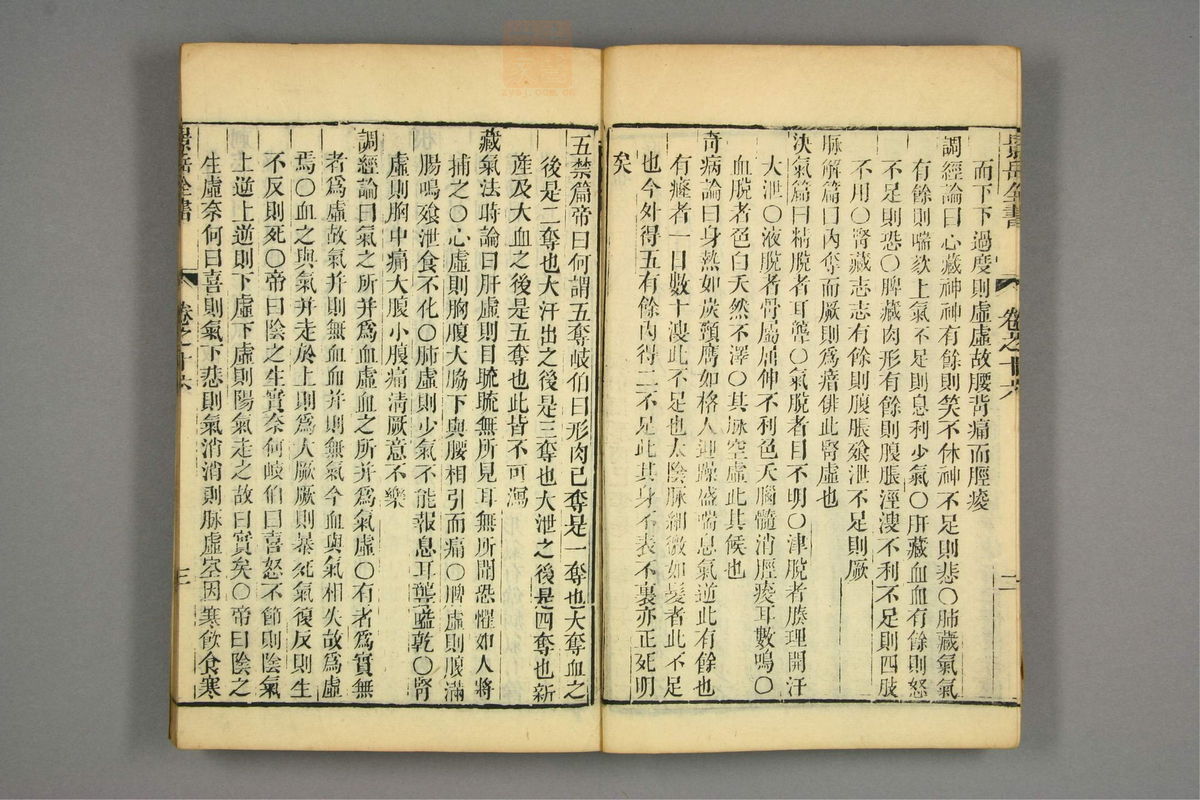 景岳全書
卷之十六
二
而下下過度則虛虛故腰背痛而脛痠
調經論曰心藏神神有餘則笑不休神不足則悲〇肺藏氣氣
有餘則喘欬上氣不足則息利少氣〇肝藏血血有餘則怒
不足則恐〇脾藏肉形有餘則腹脹涇溲不利不足則四肢
不用〇腎藏志志有餘則腹脹飧泄不足則厥
脉解篇曰內奪而厥則為瘖俳此腎虛也
決氣篇曰精脫者耳聾〇氣脫者目不明〇津脫者腠理開汗
大泄〇液脫者骨屬屈伸不利色夭腦髓消脛痠耳數鳴〇
血脫者色白夭然不澤〇其脉空虛此其候也
奇病論曰身熱如炭頸膺如格人迎躁盛喘息氣逆此有餘也
有癃者一日數十溲此不足也太陰脉細微如髮者此不足
也今外得五有餘內得二不足此其身不表不裏亦正死明
矣
五禁篇帝曰何謂五奪岐伯曰形肉已奪是一奪也大奪血之
後是二奪也大汗出之後是三奪也大泄之後是四奪也新
産及大血之後是五奪也此皆不可瀉
藏氣法時論曰肝虛則目𥇀𥇀無所見耳無所聞恐懼如人將
捕之〇心虛則胸腹大脇下與腰相引而痛〇脾虛則腹滿
腸鳴飧泄食不化〇肺虛則少氣不能報息耳聾嗌乾〇腎
虛則胸中痛大腹小腹痛清厥意不樂
調經論曰氣之所并為血虛血之所并為氣虛〇有者為實無
者為虛故氣并則無血血并則無氣今血與氣相失故為虛
焉〇血之與氣并走於上則為大厥厥則暴死氣復反則生
不反則死〇帝曰陰之生實奈何岐伯曰喜怒不節則陰氣
上逆上逆則下虛下虛則陽氣走之故曰實矣〇帝曰陰之
生虛奈何曰喜則氣下悲則氣消消則脉虛空因寒飲食寒
景岳全書
卷之十六
三